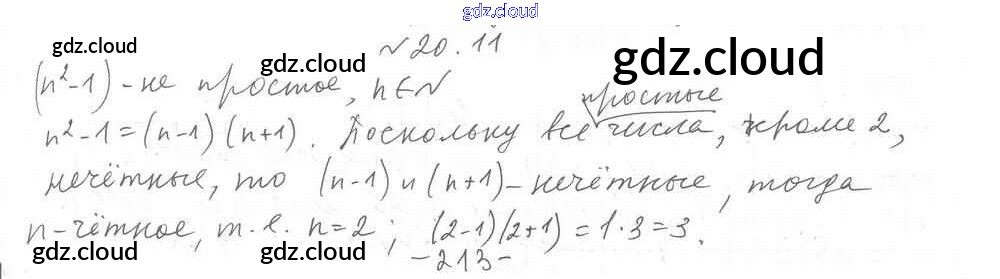 gdz.cloud
№ 20.11
gdz.cloud gdz.cloud gdz.cloud
(n²-1) - не простое, n∈N
простые
n²-1=(n-1)(n+1). Поскольку все числа, кроме 2,
нечётные, то (n-1) и (n+1) - нечётные, тогда
n-чётное, т.е. n=2; (2-1)(2+1)=1·3=3.
gdz.cloud gdz.cloud gdz.cloud
-213-